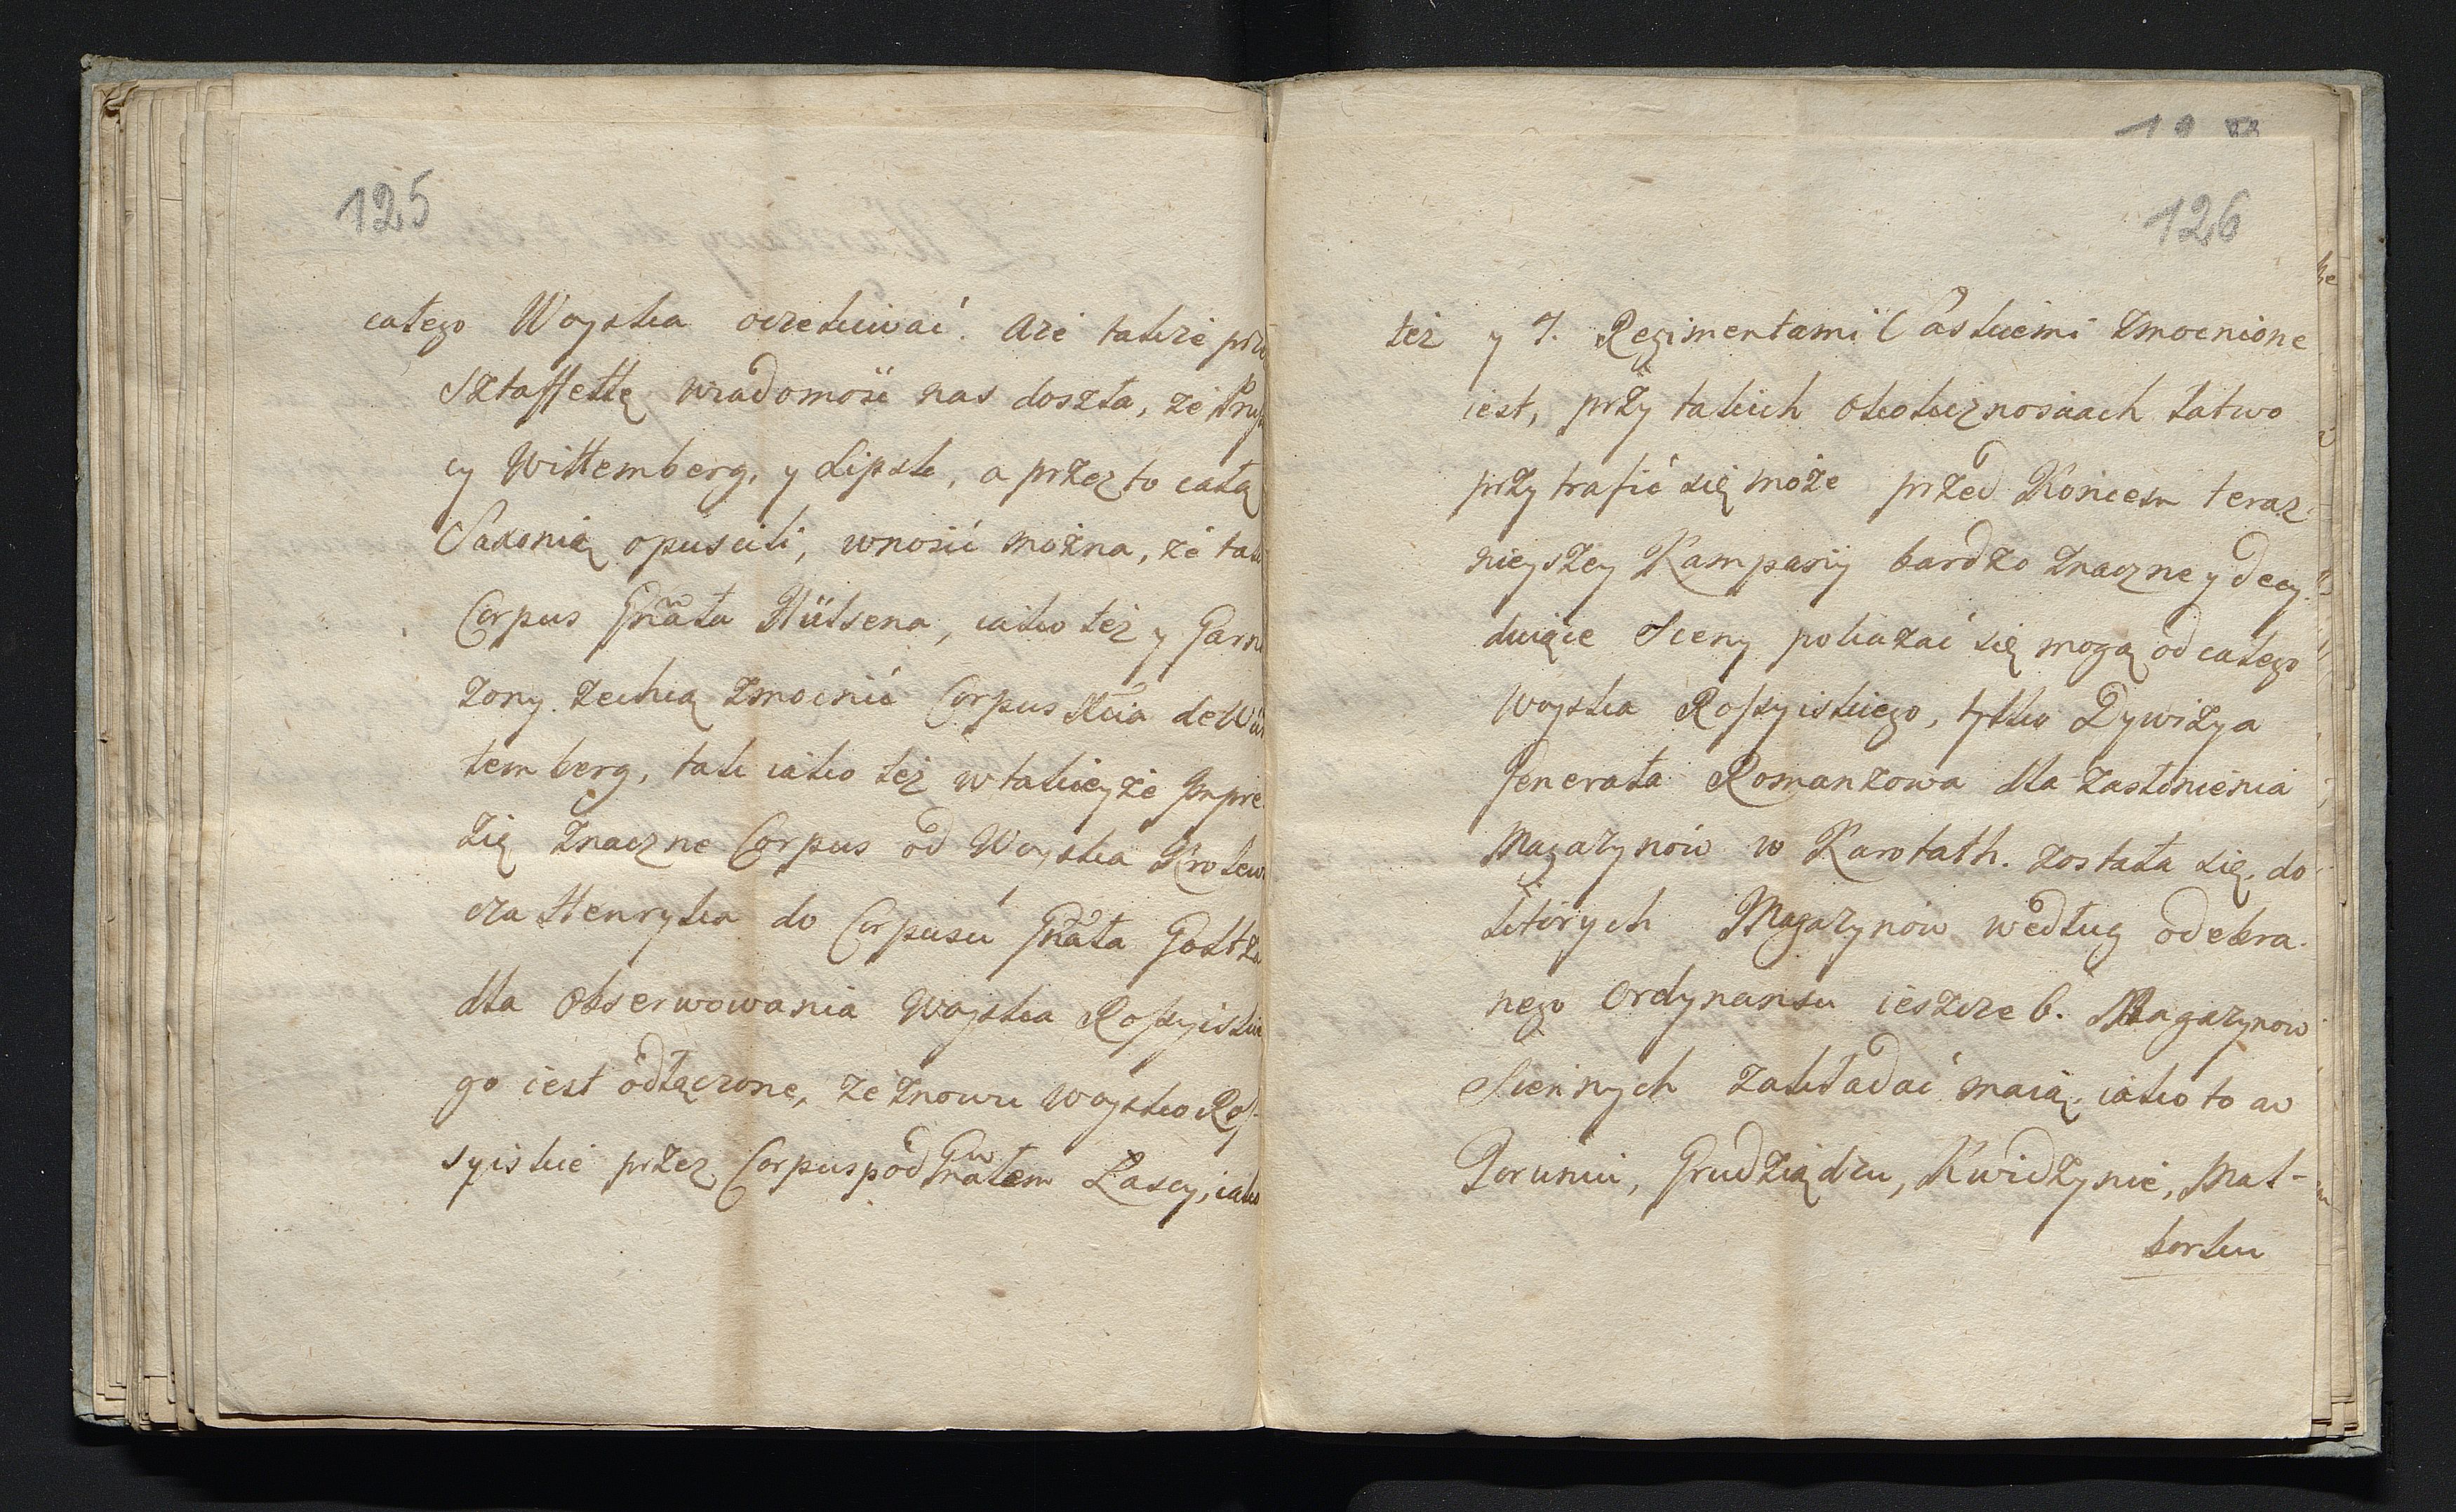 125
całego Woyska oczekiwać. Aże także prze
Sztaffettę wiadomość nas doszła, że Prus
cy Wittemberg, y Lipsk, a przez to całą
Saxonią opuscili, wnosić można, że tak
Corpus Gnãła Hülsena, iako też y Garni
zony zechcą zmocnić Corpus Xcia de Wür
temberg, tak iako też w takieyże Impre
zię znaczne Corpus od Woyska Krolewi
cza Henryka do Corpusu Gnãła Goltza
dla obserwowania Woyska Rossyiskie
go iest odłączone, że znowu Woysko Ros-
syiskie przez Corpus pod Gnãłem Lascy, iako
126
też y 7. Regimentami Saskiemi zmocnione
iest, przy takich okolicznosciach łatwo
przytrafić się może przed Koncem teraz
nieyszey Kampanij bardzo znaczne y decy
duiące Sceny pokazać się mogą od całego
Woyska Rossyiskiego, tylko Dywizya
Generała Romanzowa dla zasłonienia
Magazynow w Karotath. została się. do
ktorych Magazynow według odebra.
nego Ordynansu ieszcze 6. Magazynow
Siennych zakładać maią. iako to w
Toruniu, Grudziądzu, Kwidzynie, Mal-
borku